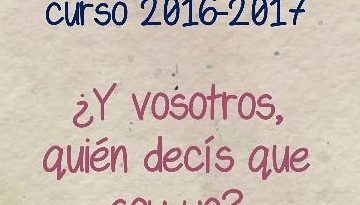 curso 2016-2017
¿Y vosotros,
quién decís que
soy yo?